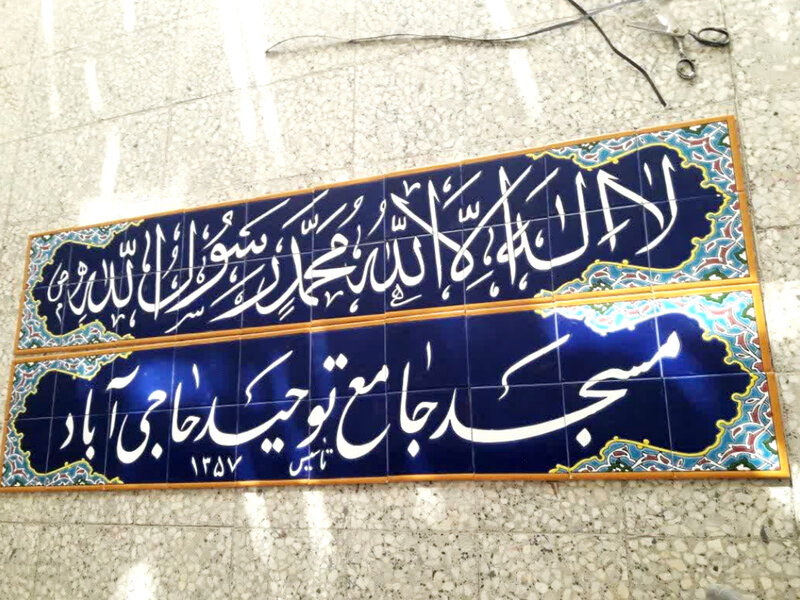 لا اله الا الله محمد رسول الله
مسجد جامع توحید حاجی آباد
تاسیس ۱۳۵۷